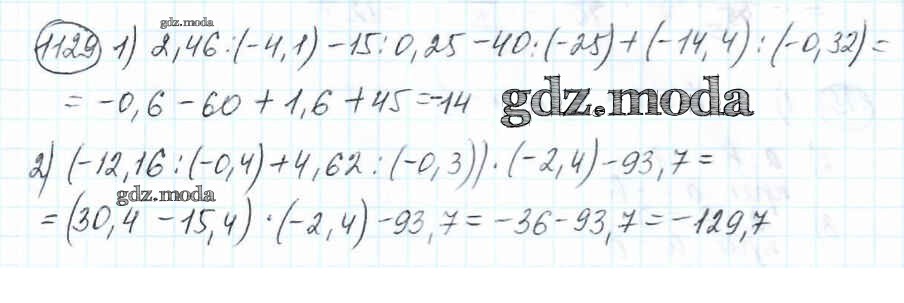 gdz.moda
1129 1) 2,46:(-4,1) -15:0,25 -40:(-25)+(-14,4):(-0,32)=
= -0,6 - 60 + 1,6 + 45 = -14
gdz.moda
2) (-12,16:(-0,4)+4,62:(-0,3))·(-2,4)-93,7=
gdz.moda
=(30,4 -15,4)·(-2,4)-93,7=-36-93,7=-129,7